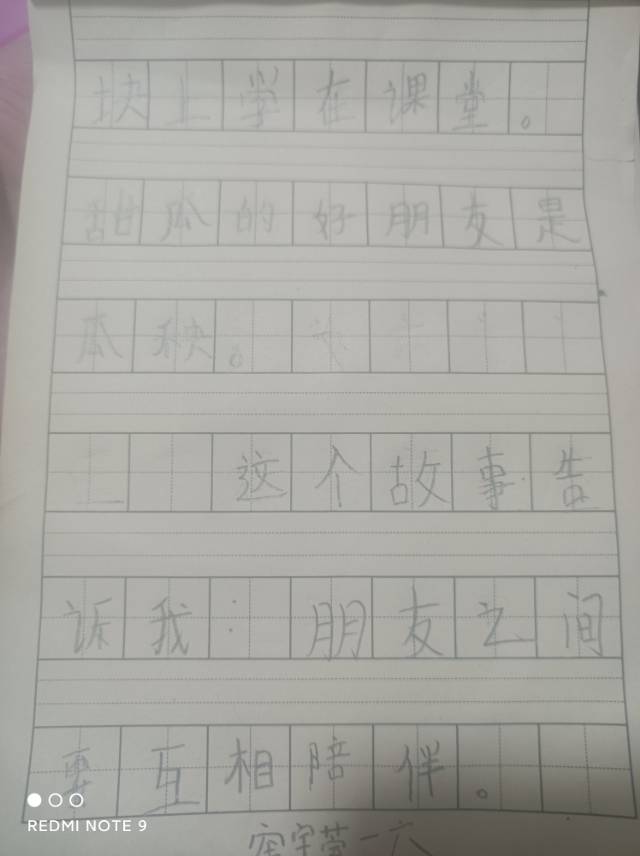 块上学在课堂。
甜瓜的好朋友是
瓜秧。
这个故事告
诉我：朋友之间
要互相陪伴。
REDMI NOTE 9
宇莹一六